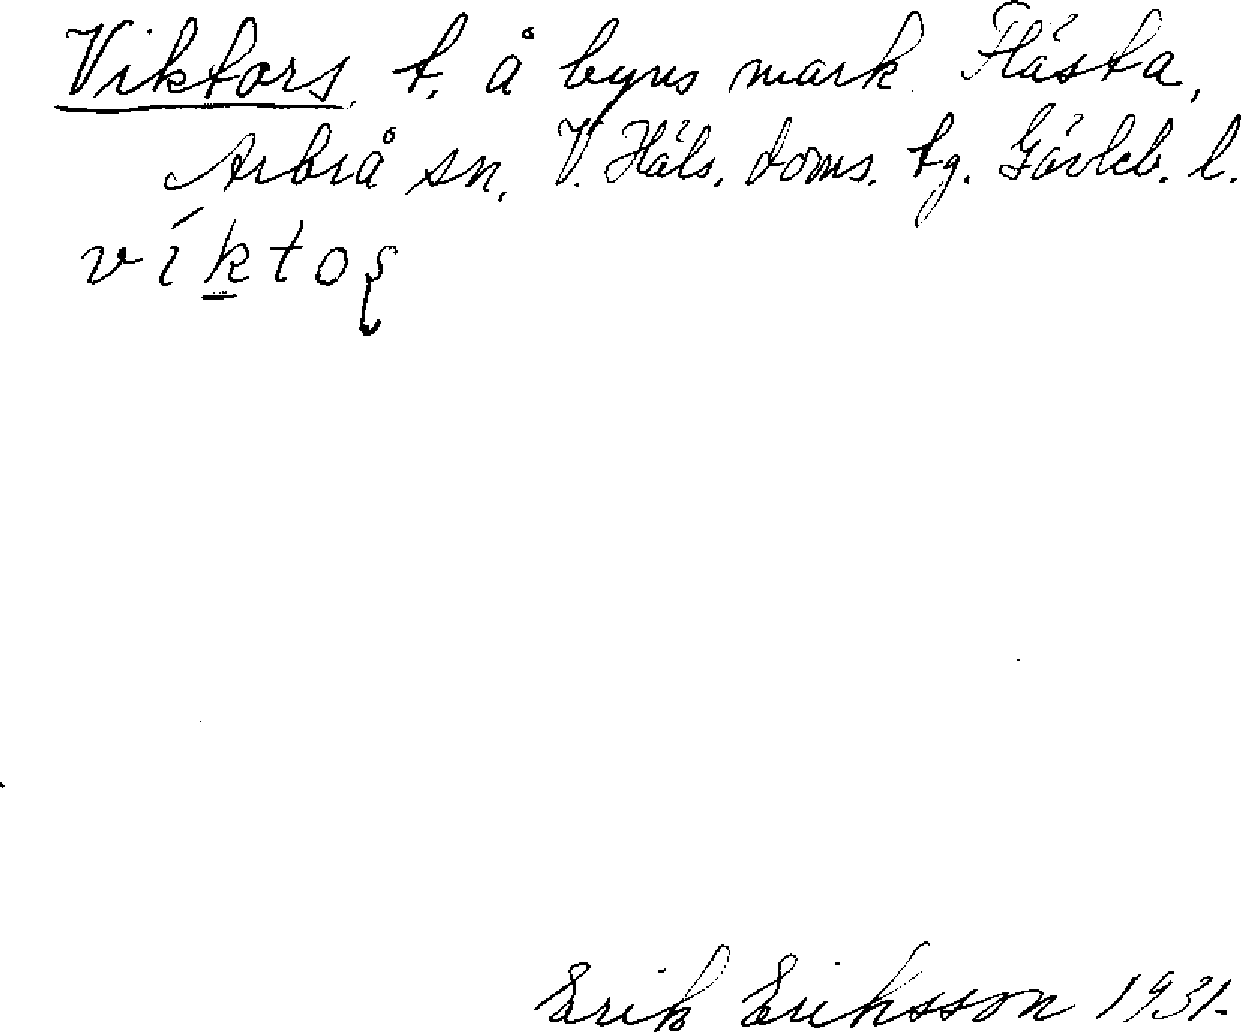 Viktors, t. å byns mark Flästa,
Arbrå sn. V. Häls. doms. tg. Gävleb. l.
víktoʂ
Erik Eriksson 1931.